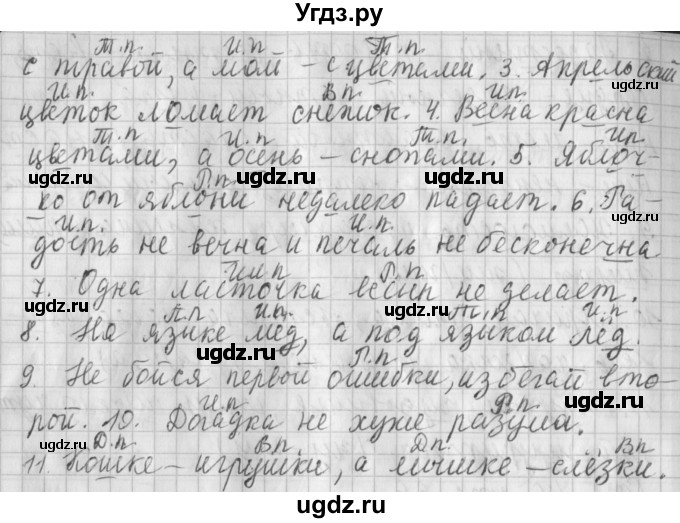 Угдз.ру
Т.п. И.п. Т.п.
с травой, а май – с цветами. 3. Апрельский
И.п. В.п. И.п.
цветок ломает снежок. 4. Весна красна
Т.п. И.п. Т.п. И.п.
цветами, а осень – снопами. 5. Яблоч-
Р.п.
ко от яблони недалеко падает. 6. Ра-
И.п. И.п.
дость не вечна и печаль не бесконечна
И.п. Р.п.
7. Одна ласточка весны не делает.
П.п. И.п. Т.п. И.п.
8. На языке мёд, а под языком лёд.
Р.п.
9. Не бойся первой ошибки, избегай вто-
И.п. Р.п.
рой. 10. Догадка не хуже разума.
Д.п. В.п. Д.п. В.п.
11. Кошке – игрушки, а мышке – слёзки.
ugdz.ru ugdz.ru ugdz.ru
ugdz.ru ugdz.ru
ugdz.ru ugdz.ru ugdz.ru
ugdz.ru
ugdz.ru ugdz.ru ugdz.ru